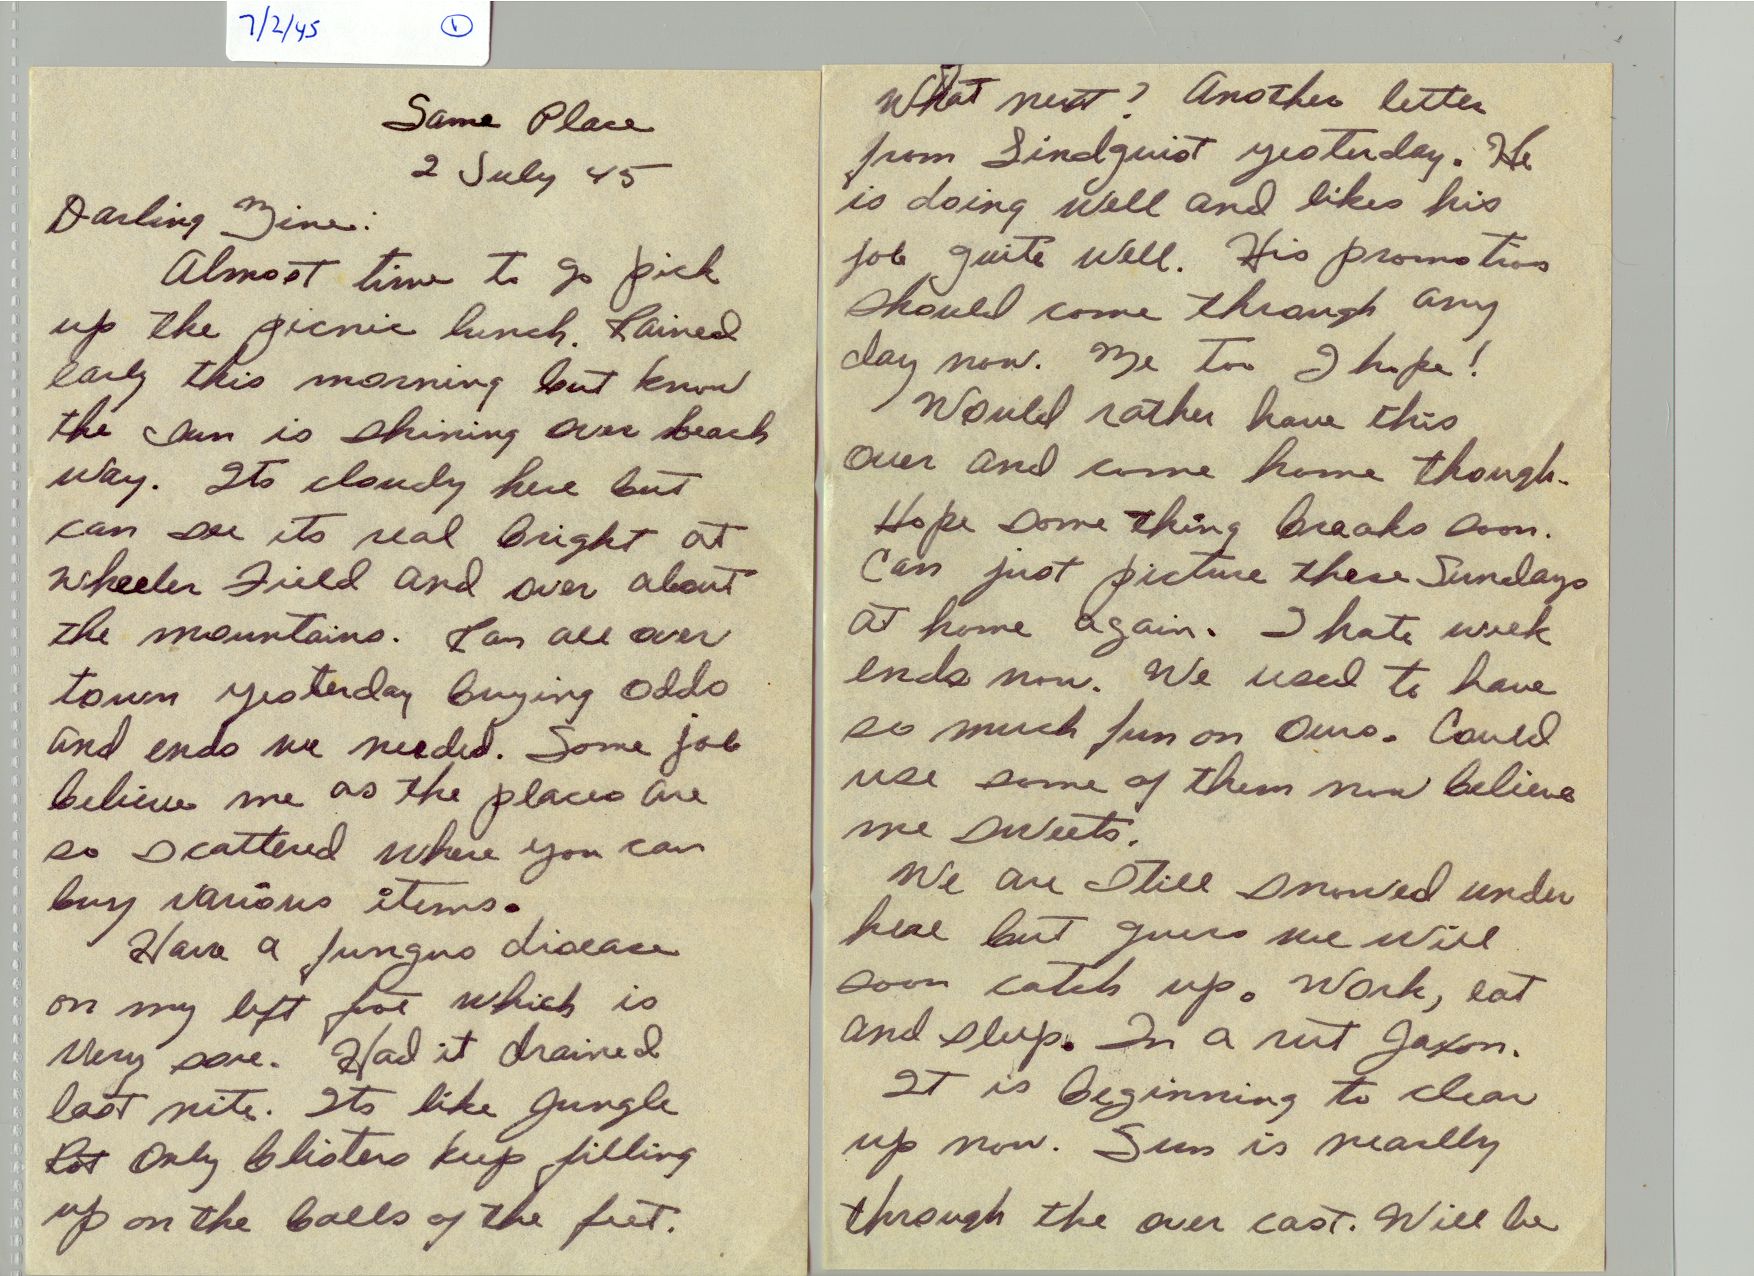 7/2/45 1
Same Place
2 July 45
Darling Mine:
Almost time to go pick
up the picnic lunch. Rained
early this morning but know
the sun is shining over beach
way. Its cloudy here but
can see its real bright at
Wheeler Field and over about
the mountains. Ran all over
town yesterday buying odds
and ends we needed. Some job
believe me as the places are
so scattered where you can
buy various items.
Have a fungus disease
on my left foot which is
very sore. Had it drained
last nite. Its like Jungle
Rot only blisters keep filling
up on the balls of the feet.
What next? Another letter
from Lindquist yesterday. He
is doing well and likes his
job quite well. His promotion
should come through any
day now. Me too I hope!
Would rather have this
over and come home though.
Hope some thing breaks soon.
Can just picture these Sundays
at home again. I hate week
ends now. We used to have
so much fun on ours. Could
use some of them now believe
me sweets.
We are still snowed under
here but guess we will
soon catch up. Work, eat
and sleep. In a rut Jaxon.
It is beginning to clear
up now. Sun is nearlly
through the over cast. Will be